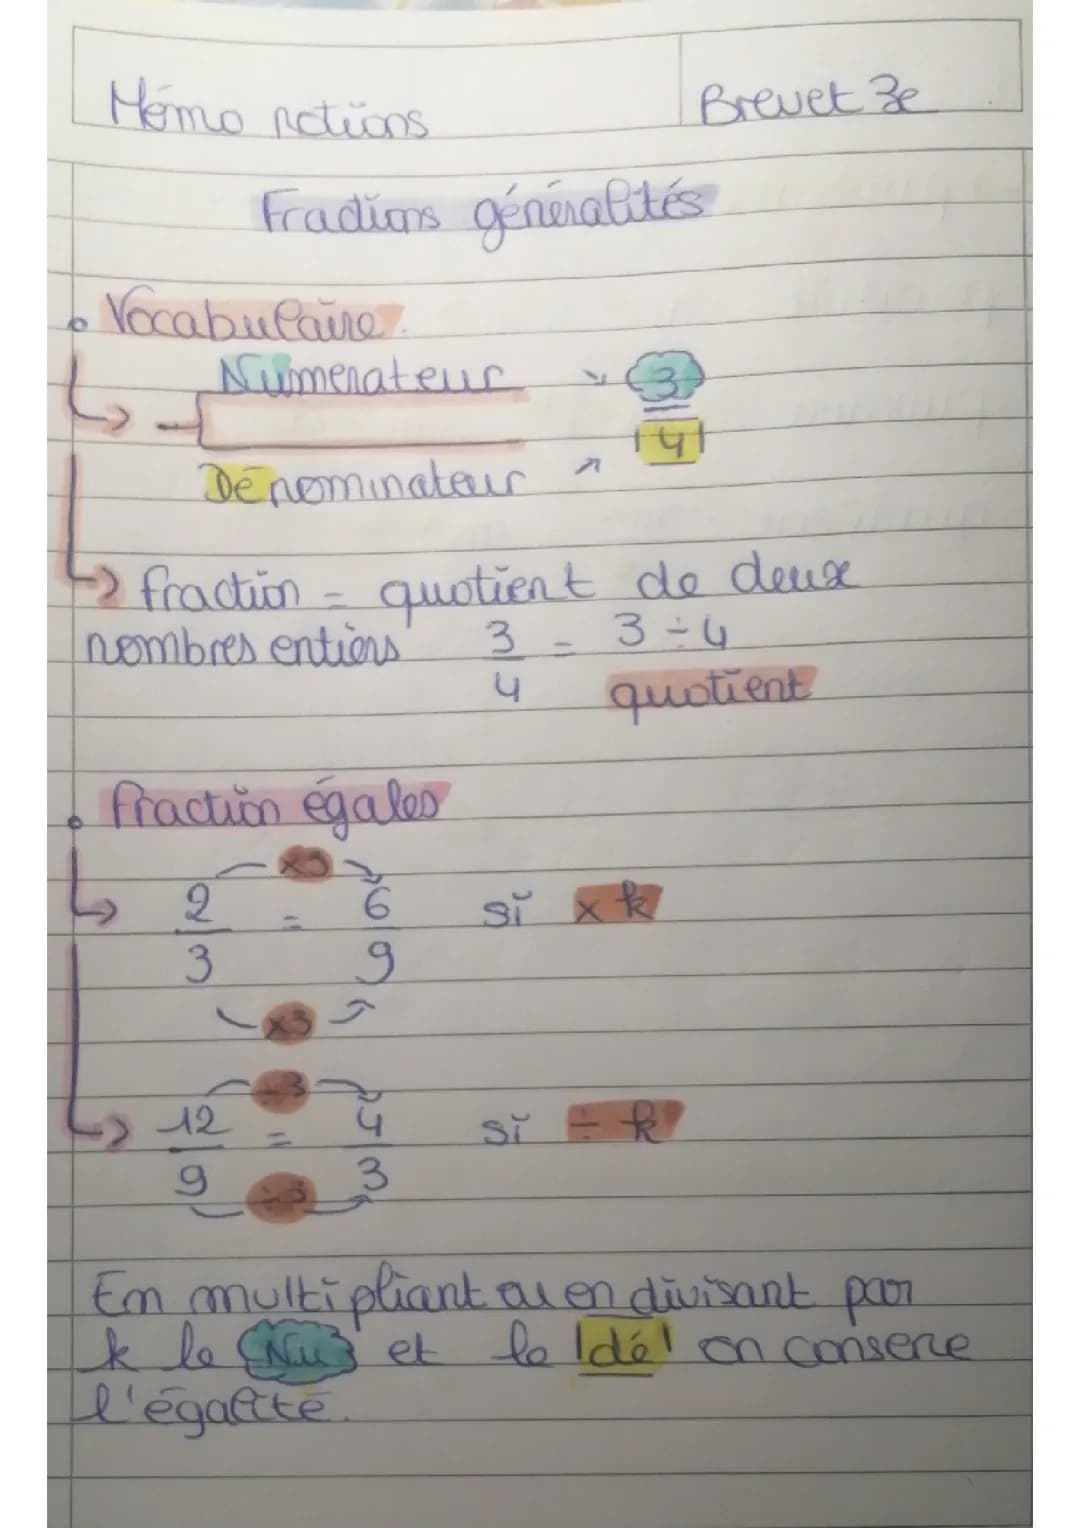 Mémo notions
Brevet 3e
Fractions généralités
• Vocabulaire.
Numérateur 3
Dénominateur 4
fraction = quotient de deux
nombres entiers 3/4 = 3 ÷ 4
quotient
• fraction égales
×3
2/3 = 6/9 si × k
×3
÷3
12/9 = 4/3 si ÷ k
÷3
En multipliant ou en divisant par
k le Nu et le dé on conserve
l'égalité.